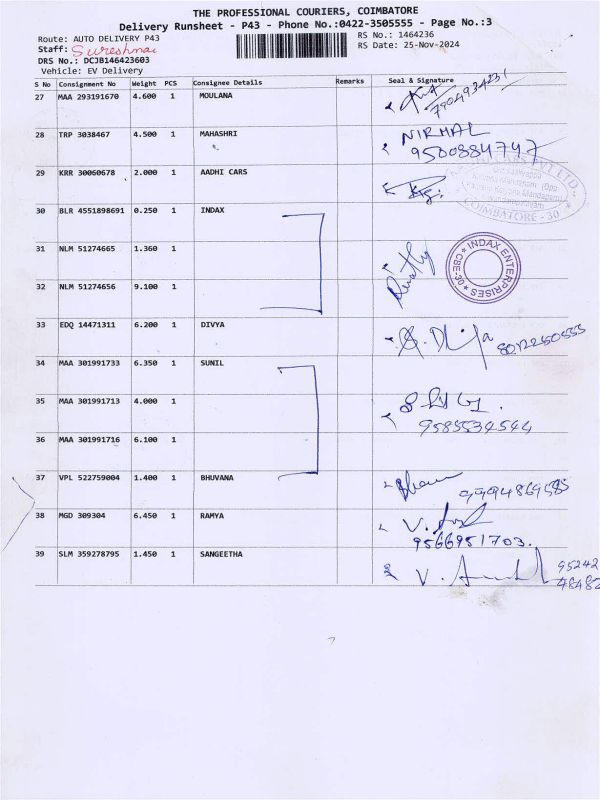 THE PROFESSIONAL COURIERS, COIMBATORE
Delivery Runsheet - P43 - Phone No.:0422-3505555 - Page No.:3
Route: AUTO DELIVERY P43
RS No.: 1464236
Staff:
RS Date: 25-Nov-2024
DRS No.: DCJB146423603
Vehicle: EV Delivery
S No Consignment No Weight PCS Consignee Details Remarks Seal & Signature
27 MAA 293191670 4.600 1 MOULANA
28 TRP 3038467 4.500 1 MAHASHRI NIRMAL
9500884747
29 KRR 30060678 2.000 1 AADHI CARS
COIMBATORE - 30
30 BLR 4551898691 0.250 1 INDAX
31 NLM 51274665 1.360 1
INDAX ENTERPRISES CBE-30
32 NLM 51274656 9.100 1
33 EDQ 14471311 6.200 1 DIVYA
34 MAA 301991733 6.350 1 SUNIL
35 MAA 301991713 4.000 1
9585534544
36 MAA 301991716 6.100 1
37 VPL 522759004 1.400 1 BHUVANA
9994869585
38 MGD 309304 6.450 1 RAMYA
9566951703.
39 SLM 359278795 1.450 1 SANGEETHA
95242
48482